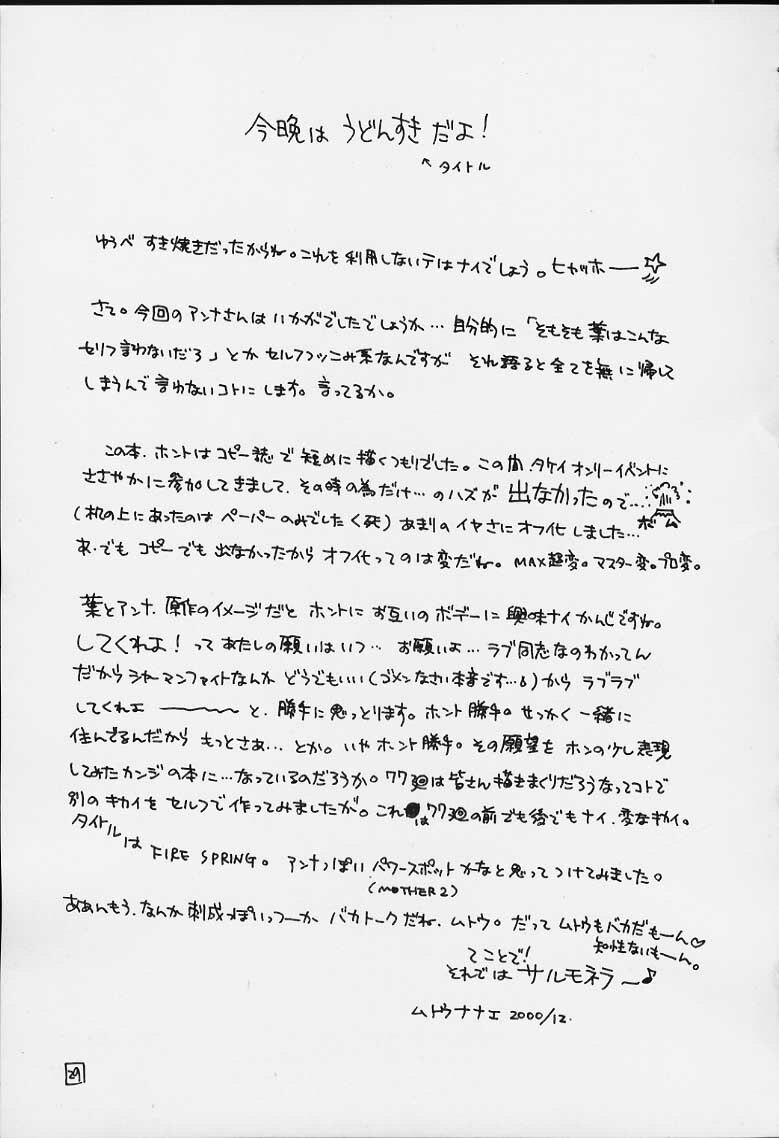 今晩は うどんすき だよ!
↖タイトル
ゆうべ すき焼きだったからね。これを利用しないテはナイでしょう。ヒャッホー――☆
さて。今回のアンナさんはいかがでしたでしょうか…自分的に「そもそも葉はこんな
セリフ言わないだろ」とか セルフツッこみ系なんですが それ語ると全てを無に帰して
しまうんで言わないコトにします。言ってるか。
この本、ホントはコピー誌で短めに描くつもりでした。この間、タケイオンリーイベントに
ささやかに参加してきまして、その時の為だけ…のハズが 出なかったので…
ボム
(机の上にあったのは ペーパーのみでした<死) あまりのイヤさにオフ化しました…
あ、でも コピーでも出なかったから オフ化ってのは変だね。MAX超変。マスター変。プロ変。
葉とアンナ、原作のイメージだと ホントにお互いのボデーに興味ナイかんじですね。
してくれよ!って あたしの願いはいつ… お願いよ…ラブ同志なのわかってん
だからシャーマンファイトなんか どうでもいい(ゴメンなさい本音です…)からラブラブ
してくれェ ――――と、勝手に思っとります。ホント勝手。せっかく一緒に
住んでるんだから もっとさぁ… とか。いや ホント勝手。その願望を ホンの少し表現
してみたカンジの本に…なっているのだろうか。77廻は皆さん描きまくりだろうなってコトで
別のキカイを セルフで作ってみましたが。これは77廻の前でも後でもナイ、変なキカイ。
タイトルは FIRE SPRING。 アンナっぽい パワースポットかなと思ってつけてみました。
(MOTHER2)
ああんもう、なんか 刺成っぽいっつーか バカトークだね、ムトウ。だって ムトウもバカだもーん♡
知性ないもーん。
てことで!
それでは サルモネラ ～♪
ムトウナナエ 2000/12.
29